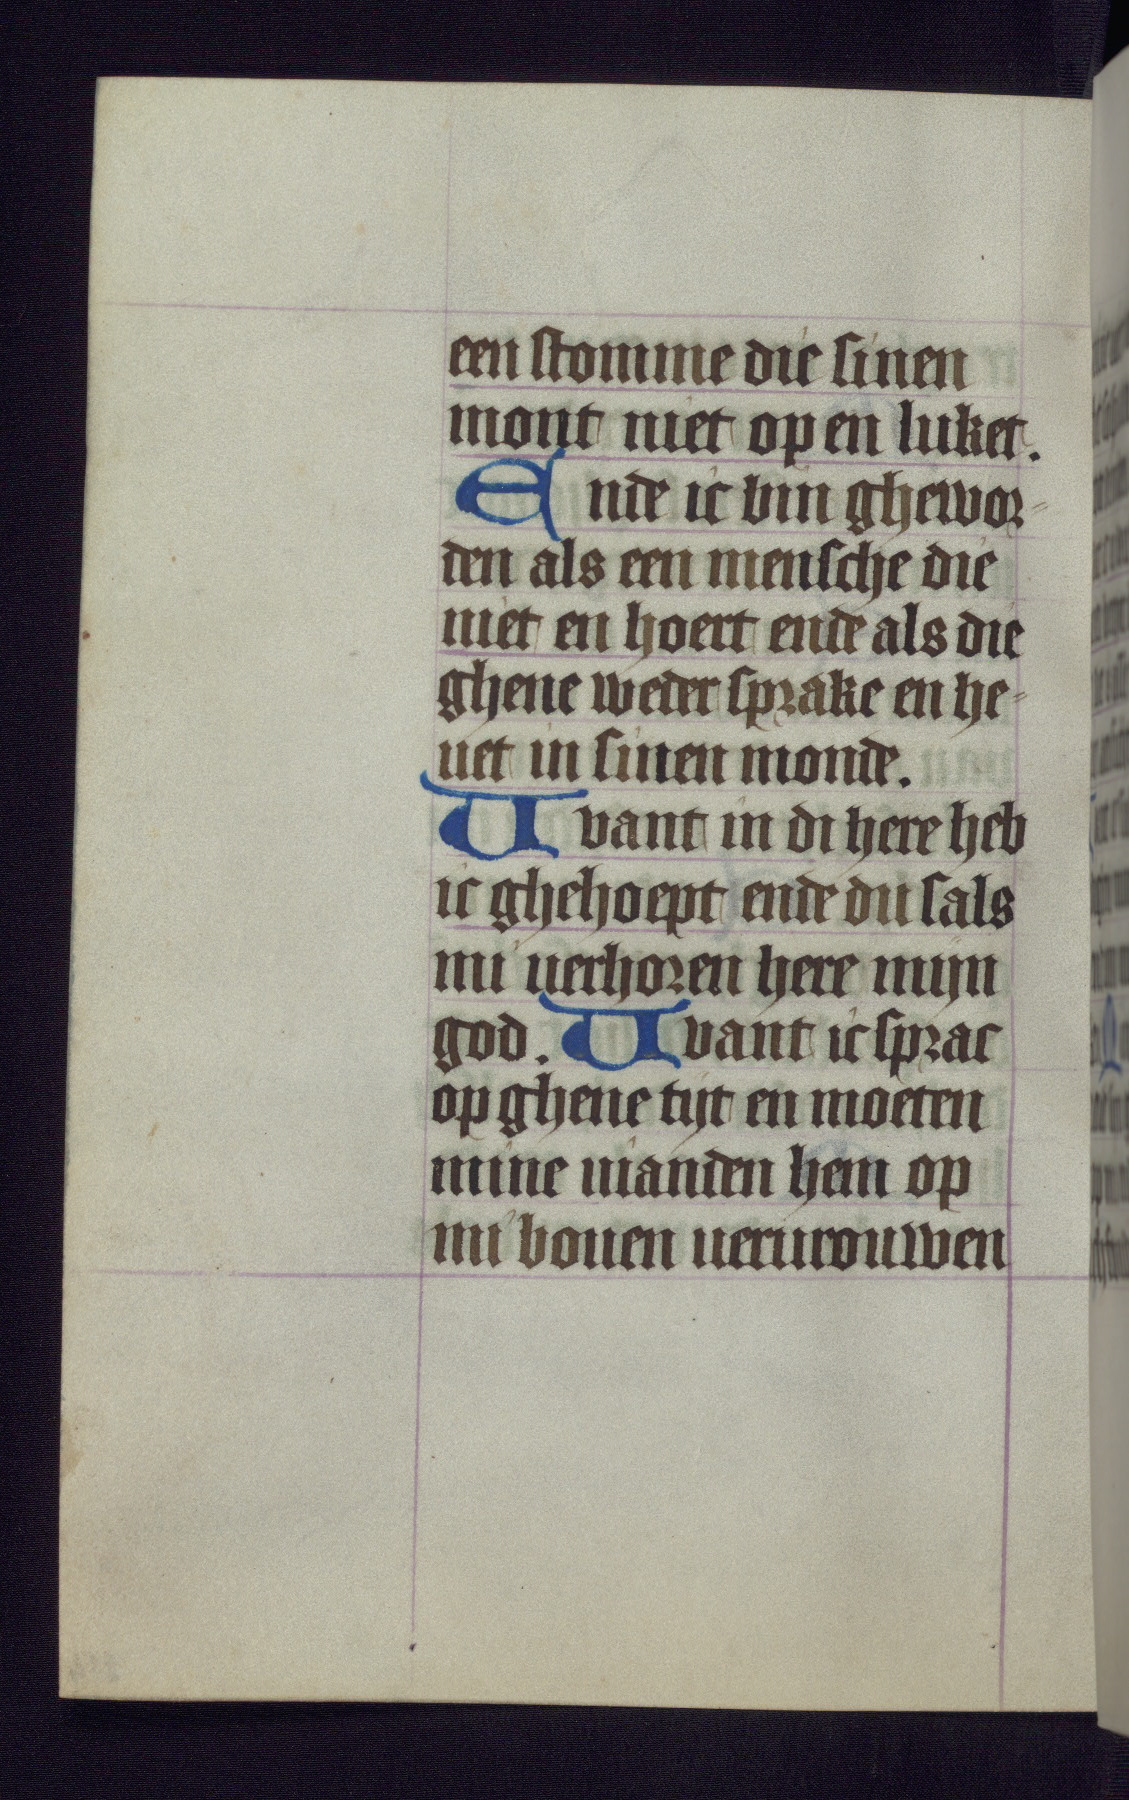 een stomme die sinen
mont niet op en luket.
Ende ic bin ghewor-
den als een mensche die
niet en hoert ende als die
ghene weder sprake en he-
uet in sinen monde.
Uvant in di here heb
ic ghehoept ende du sals
mi uerhoren here mijn
god. Uvant ic sprac
op ghene tijt en moeten
mine uianden hem op
mi bouen uerurouwen